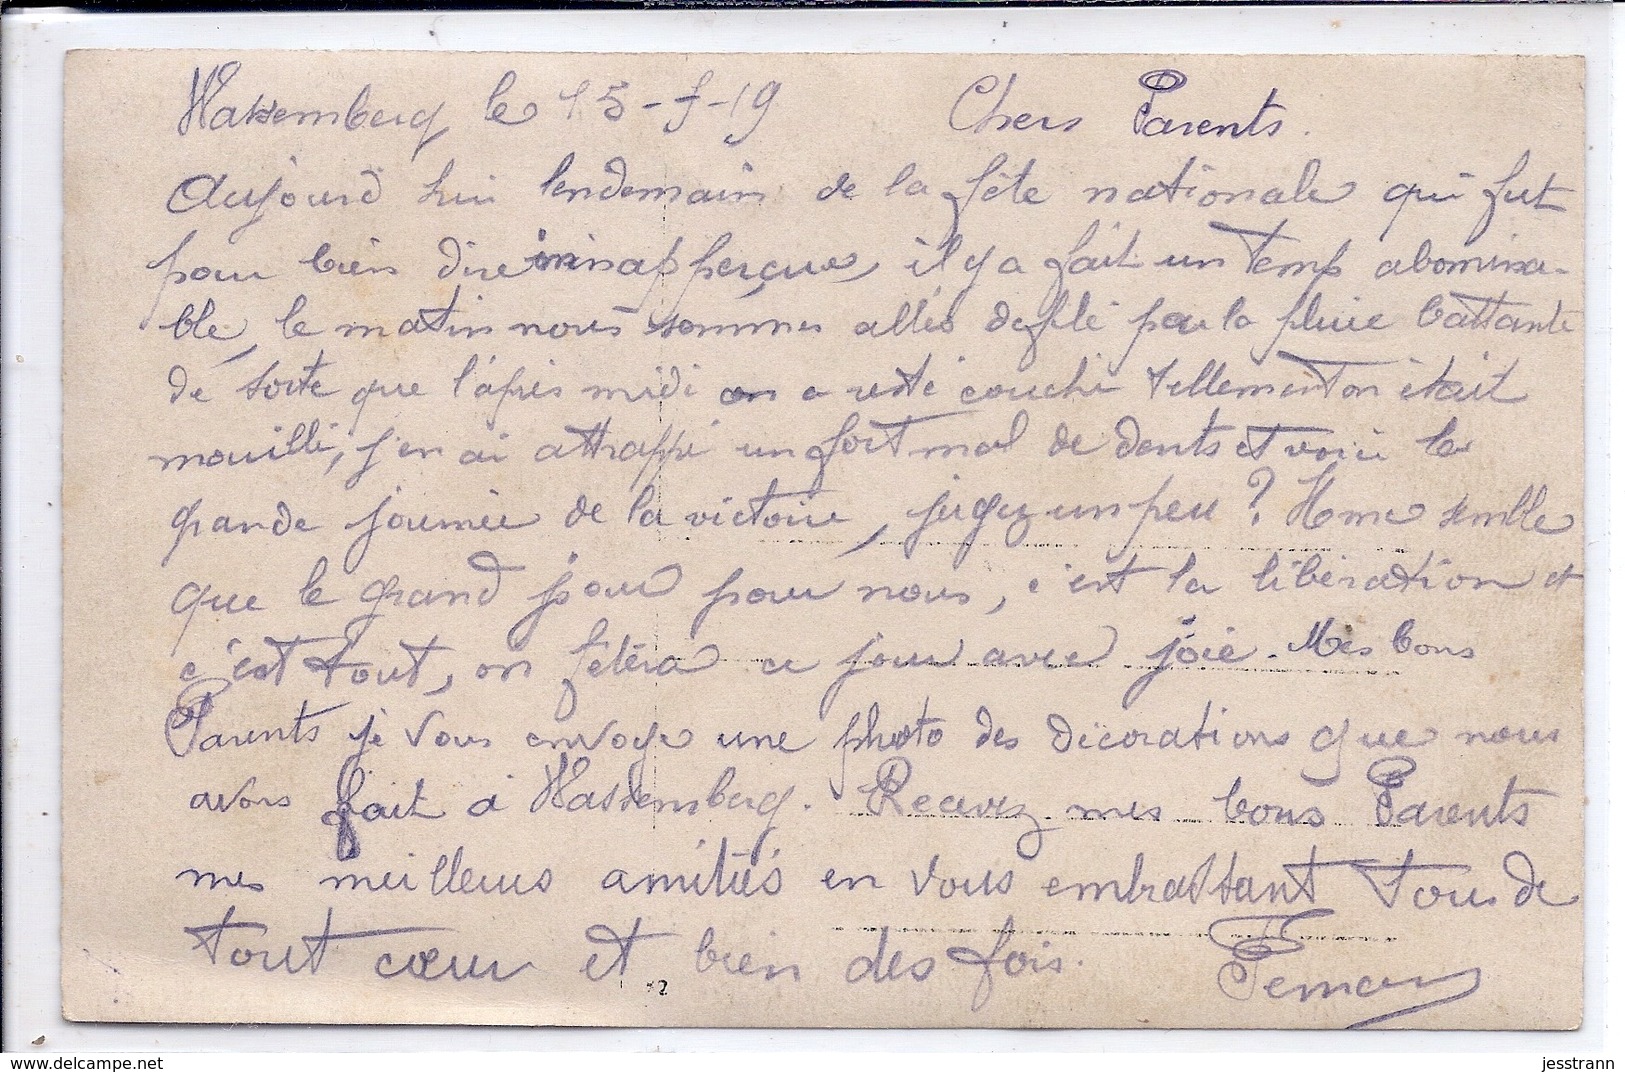 Wassemberg le 15-7-19 Chers Parents.
Aujourd hui lendemain de la fête nationale qui fut
pour bien dire inapperçue, il y a fait un temps abomina-
ble, le matin nous sommes allés defilé par la pluie battante
de sorte que l'après midi on a resté couché tellement on était
mouillé, j'en ai attrappé un fort mal de dents et voici la
grande journée de la victoire, jugez un peu ? Il me semble
que le grand jour pour nous, c'est la libération et
c'est tout, on fêtera ce jour avec joie. Mes bons
Parents je vous envoye une photo des décorations que nous
avons fait à Wassemberg. Recevez mes bons Parents
mes meilleurs amitiés en vous embrassant tous de
tout cœur et bien des fois.
jesstrann